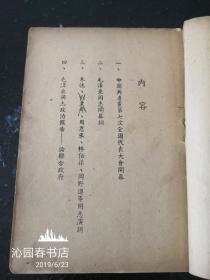 内容
一、中国共产党第七次全国代表大会开幕
二、毛泽东同志开幕词
三、朱德、刘少奇、周恩来、林伯渠、冈野进等同志演说
四、毛泽东同志政治报告——论联合政府
沁园春书店
2019/6/23